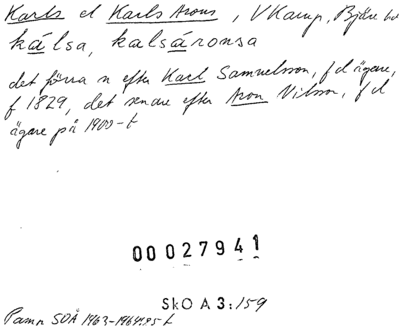 Karls el Karls Arons, V Karup, Bjäre hd
kálsa, kalsáronsa
det förra n efter Karl Samuelsson, f d ägare,
f 1829, det senare efter Aron Nilsson, f d
ägare på 1900-t
00027941
SkO A 3:159
SOÅ 1963-1964